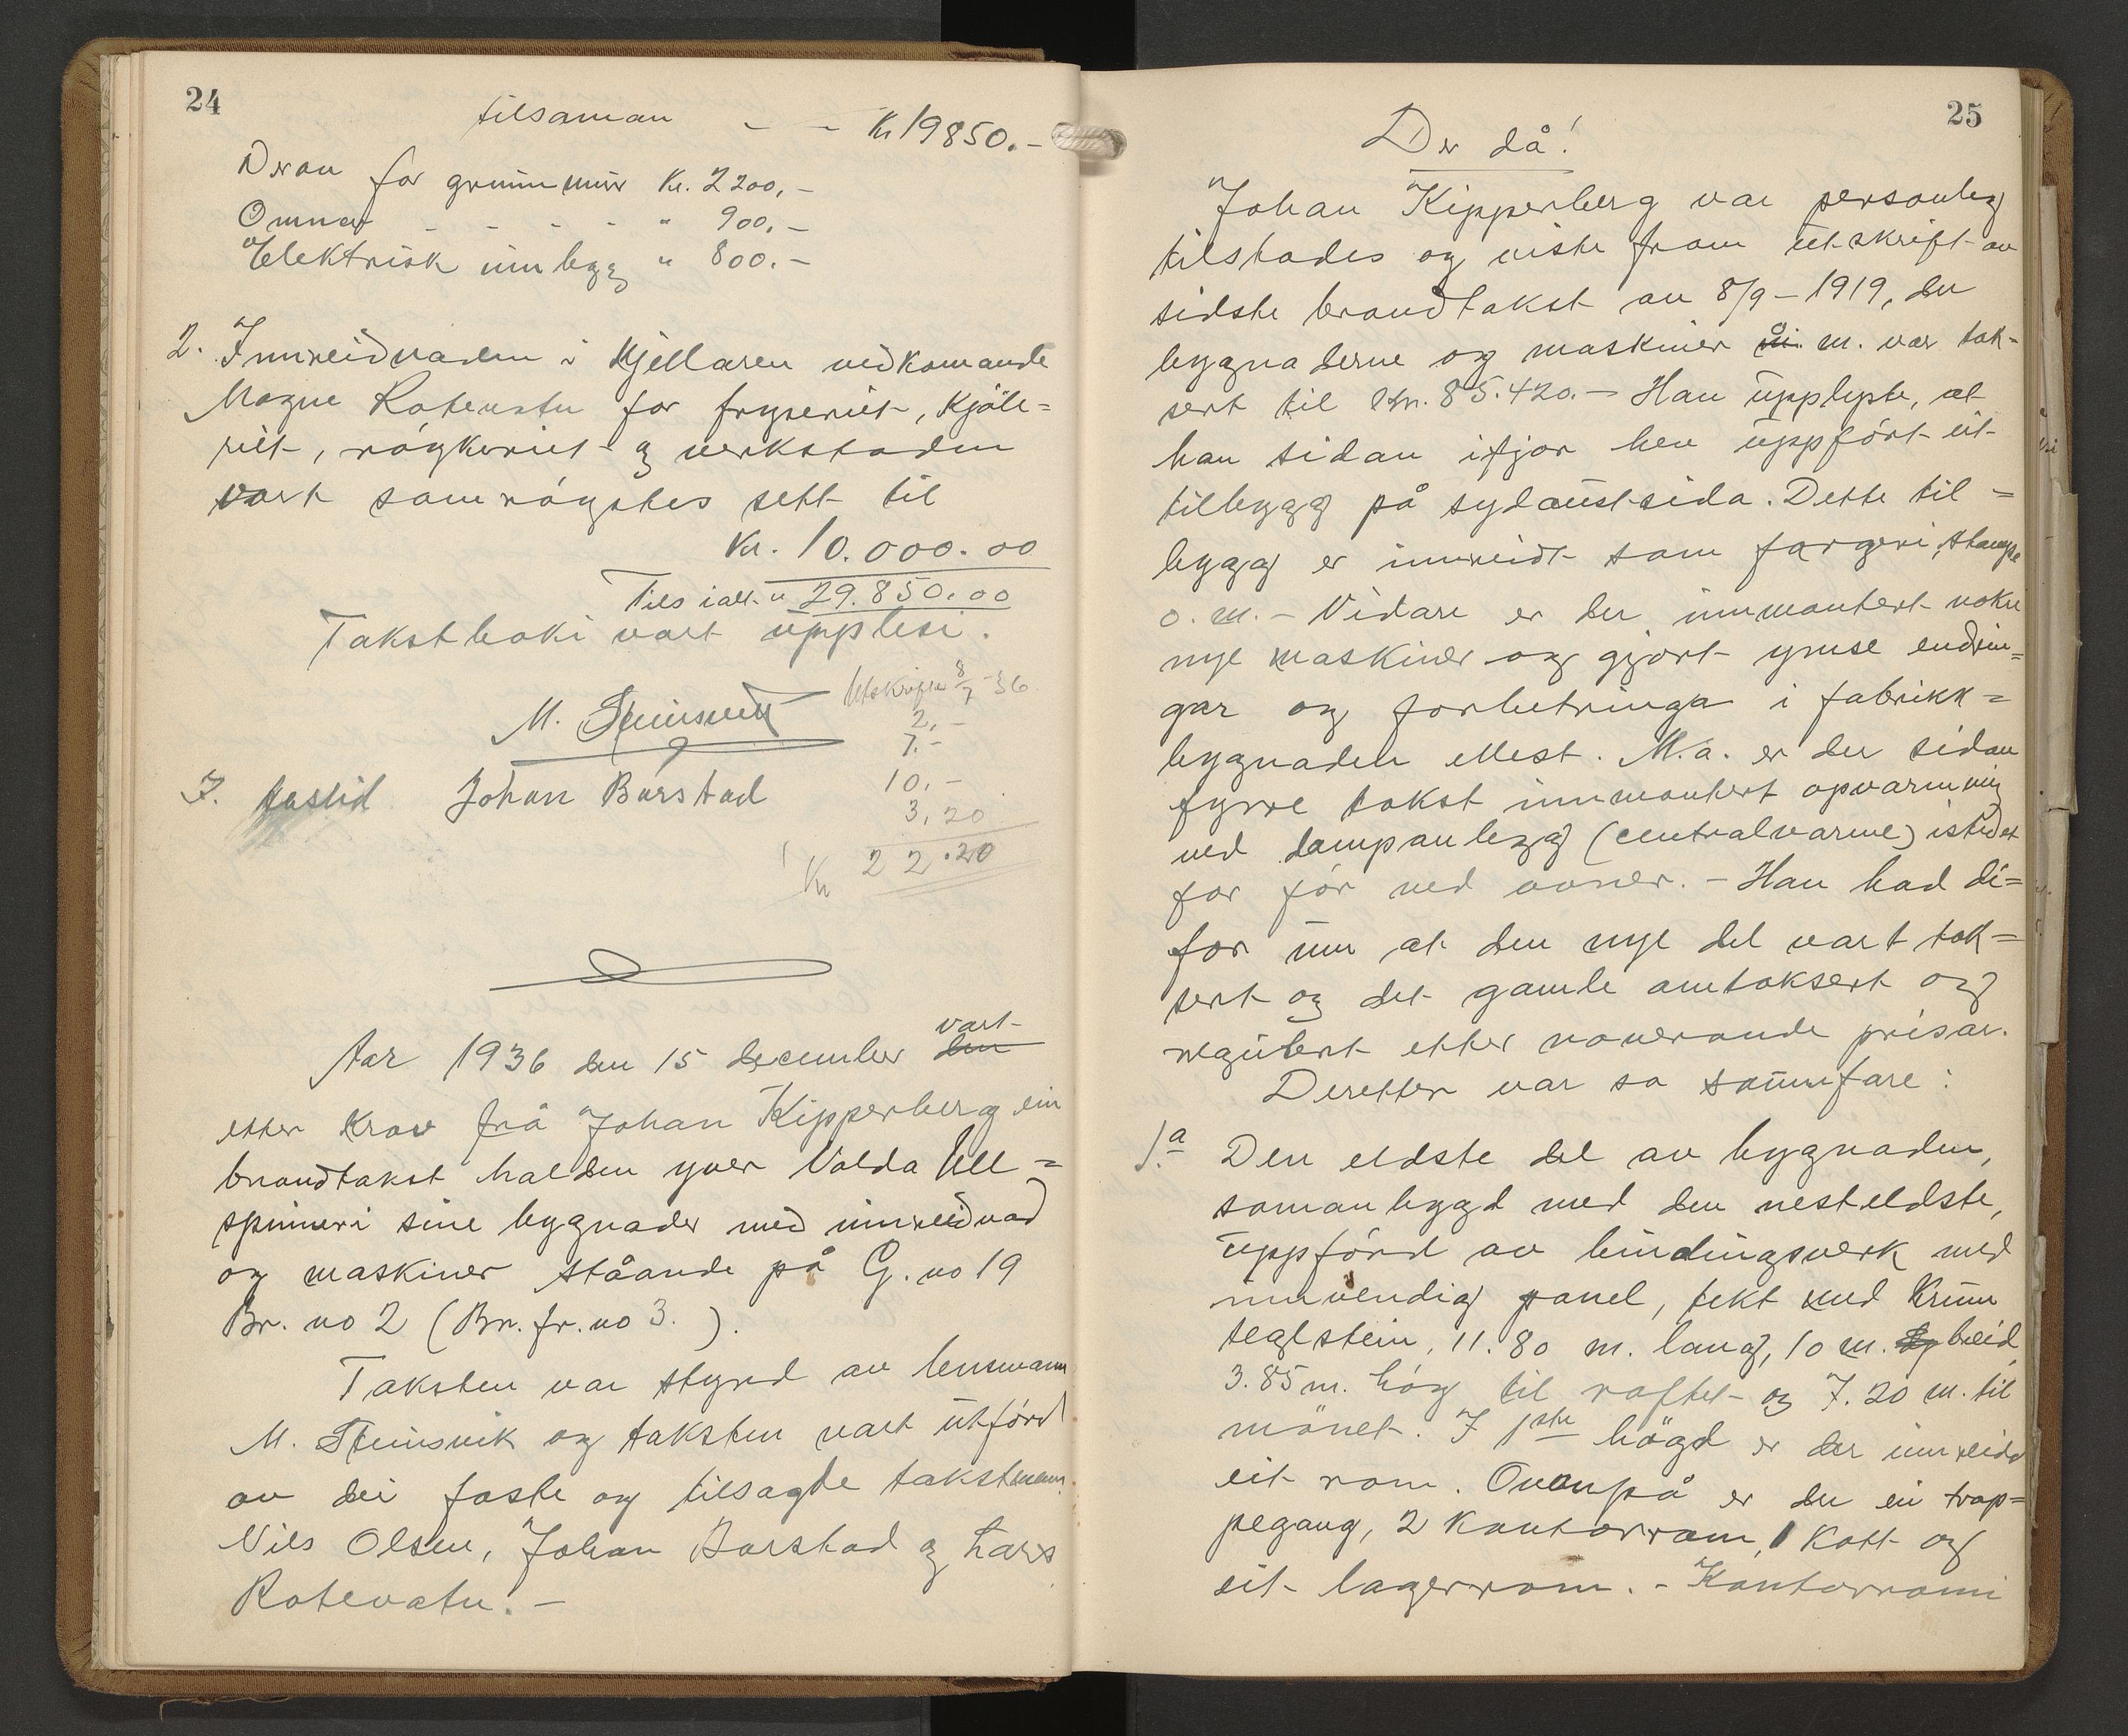 24
tilsaman - - Kr 19850.-
Derav for grunnmur Kr. 2200,-
Omnar - - - - " 900.-
Elektrisk innlegg " 800.-
2. Innreidnaden i Kjellaren vedkomande
Magne Rotevatn for fryseriet, Kjöle-
riet, röykeriet og verkstaden
vart samröystes sett til
Kr. 10.000.00
Tils ialt " 29.850.00
Takstboki vart upplesi.
M. Steinsvik
Utskrift 8/7-36
2,-
7.-
10,-
3,20
Kr 22.20
J. Aaslid Johan Barstad
Aar 1936 den 15 december den vart
etter Krav frå Johan Kipperberg ein
brandtakst halden yver Volda Ull-
spinneri sine bygnader med innreidnad
og maskiner ståande på G. no 19
Br. no 2 (Br. fr. no 3. ).
Taksten var styrd av lensmann
M. Steinsvik og taksten vart utförd
av dei faste og tilsagde takstmenn
Nils Olsen, Johan Barstad og Lars
Rotevatn. -
25
Der då!
Johan Kipperberg var personleg
tilstades og viste fram utskrift av
sidste brandtakst av 8/9 - 1919, der
bygnaderne og maskiner m. var tak-
sert til Kr. 85.420.- Han upplyste, at
han sidan ifjor hev uppfört eit
tilbygg på sydaustsida. Dette til-
bygg er innreidt som fargeri, stampe
o. m. - Vidare er der innmontert nokre
nye maskiner og gjort ymse endrin-
gar og forbetringa i fabrikk-
bygnaden ellest. M.a. er der sidan
fyrre takst innmontert opvarming
ved dampanlegg (centralvarme) istedet
for för ved ovner. - Han bad di-
for um at den nye del vart tak-
sert og det gamle omtaksert og
regulert etter noverande prisar.
Deretter var so sömnfare:
1.a Den eldste del av bygnaden,
samanbygd med den nesteldste,
uppförd av bindingsverk med
innvendig panel, tekt med Krum
teglstein, 11.80 m. lang, 10 m. breid
3.85 m. hög til raftet og 7.20 m. til
mönet. I 1ste högd er der innreidd
eit rom. Ovanpå er der ei trap-
pegang, 2 Kontorrom, 1 Kott og
eit lagerrom. - Kontorromi